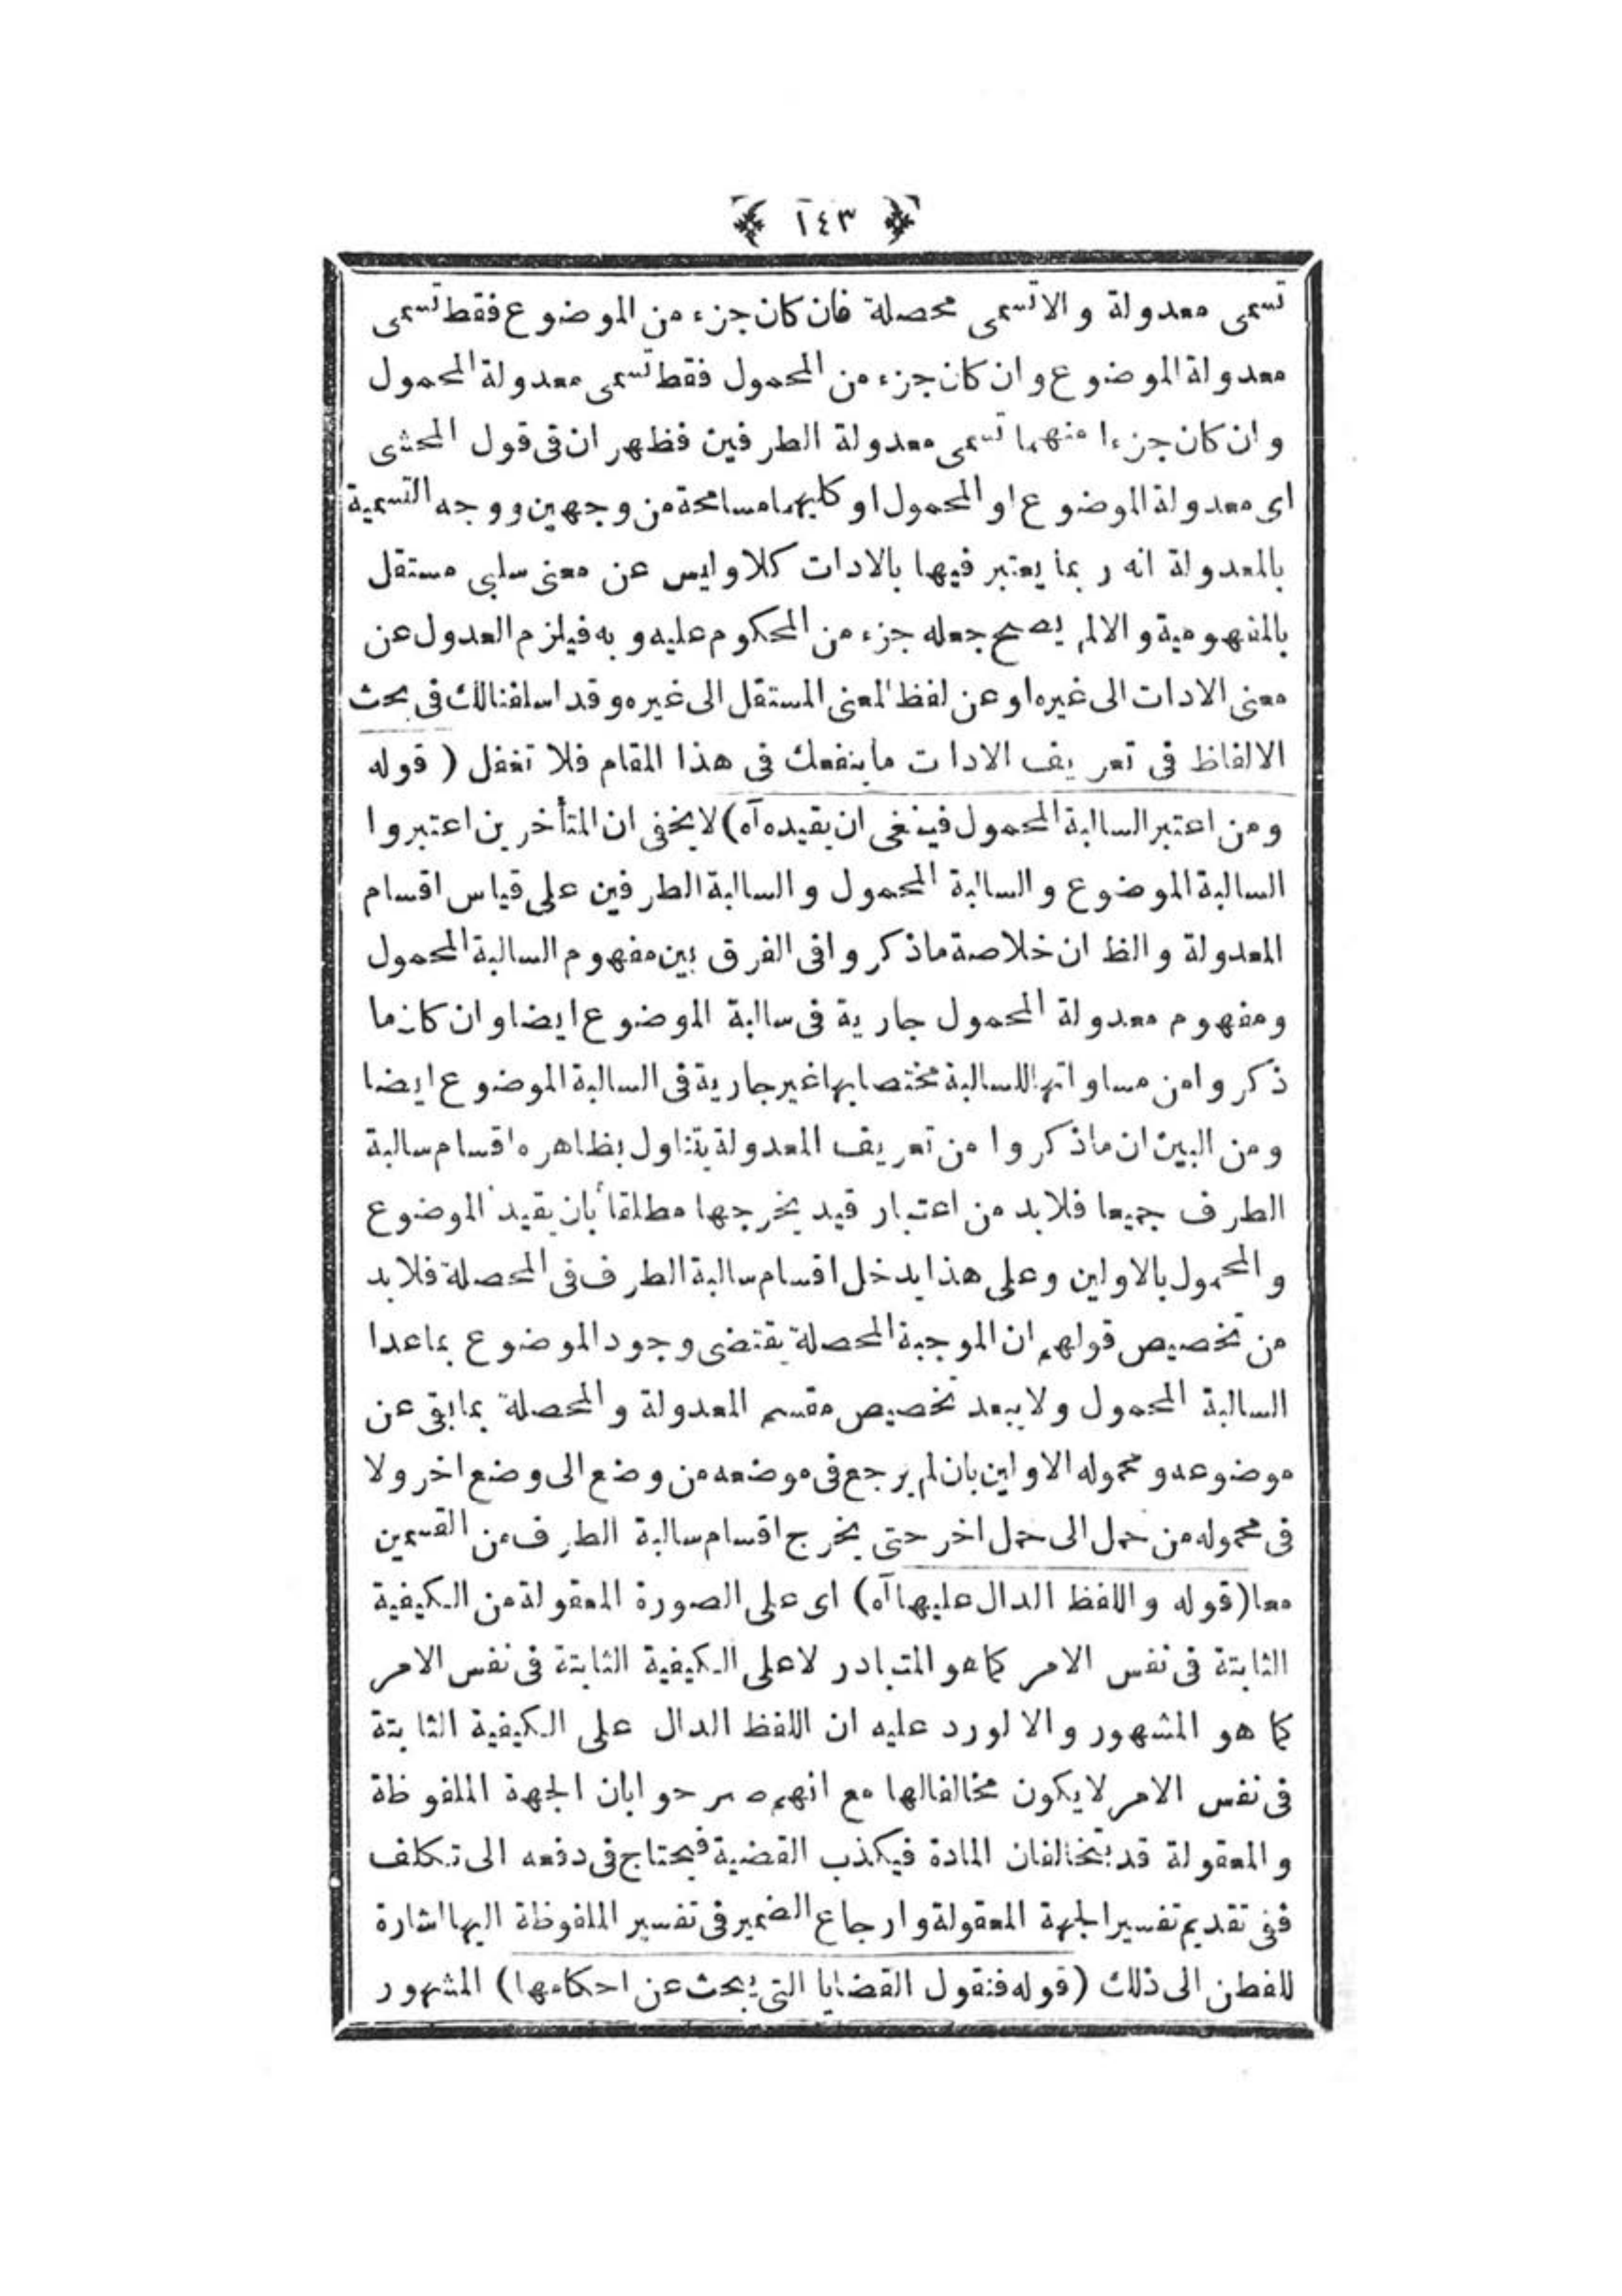 ١٤٣
تسمى معدولة والا تسمى محصلة فان كان جزء من الموضوع فقط تسمى
معدولة الموضوع وان كان جزء من المحمول فقط تسمى معدولة المحمول
وان كان جزءا منهما تسمى معدولة الطرفين فظهر ان فى قول المحشى
اى معدولة الموضوع او المحمول او كليهما مسامحة من وجهين ووجه التسمية
بالمعدولة انه ربما يعتبر فيها بالادات كلا وليس عن معنى سلبى مستقل
بالمفهومية والا لم يصح جعله جزء من المحكوم عليه وبه فيلزم العدول عن
معنى الادات الى غيره او عن لفظ المعنى المستقل الى غيره وقد اسلفنا لك فى بحث
الالفاظ فى تعريف الادات ما ينفعك فى هذا المقام فلا تغفل ( قوله
ومن اعتبر السالبة المحمول فينبغى ان يقيده آه) لا يخفى ان المتأخرين اعتبروا
السالبة الموضوع والسالبة المحمول والسالبة الطرفين على قياس اقسام
المعدولة والظ ان خلاصة ما ذكروا فى الفرق بين مفهوم السالبة المحمول
ومفهوم معدولة المحمول جارية فى سالبة الموضوع ايضا وان كان ما
ذكروا من مساواتها للسالبة مختصا بها غير جارية فى السالبة الموضوع ايضا
ومن البين ان ما ذكروا من تعريف المعدولة يتناول بظاهره اقسام سالبة
الطرف جميعا فلا بد من اعتبار قيد يخرجها مطلقا بان يقيد الموضوع
والمحمول بالاولين وعلى هذا يدخل اقسام سالبة الطرف فى المحصلة فلا بد
من تخصيص قولهم ان الموجبة المحصلة يقتضى وجود الموضوع بما عدا
السالبة المحمول ولا يبعد تخصيص مقسم المعدولة والمحصلة بما بقى عن
موضوعه ومحموله الاولين بان لم يرجع فى موضعه من وضع الى وضع اخر ولا
فى محموله من حمل الى حمل اخر حتى يخرج اقسام سالبة الطرف من القسمين
معا (قوله واللفظ الدال عليها آه) اى على الصورة المعقولة من الكيفية
الثابتة فى نفس الامر كما هو المتبادر لا على الكيفية الثابتة فى نفس الامر
كما هو المشهور والا لورد عليه ان اللفظ الدال على الكيفية الثابتة
فى نفس الامر لا يكون مخالفا لها مع انهم صرحوا بان الجهة الملفوظة
والمعقولة قد يتخالفان المادة فيكذب القضية فيحتاج فى دفعه الى تكلف
ففى تقديم تفسير الجهة المعقولة وارجاع الضمير فى تفسير الملفوظة اليها اشارة
للفطن الى ذلك (قوله فنقول القضايا التى يبحث عن احكامها) المشهور